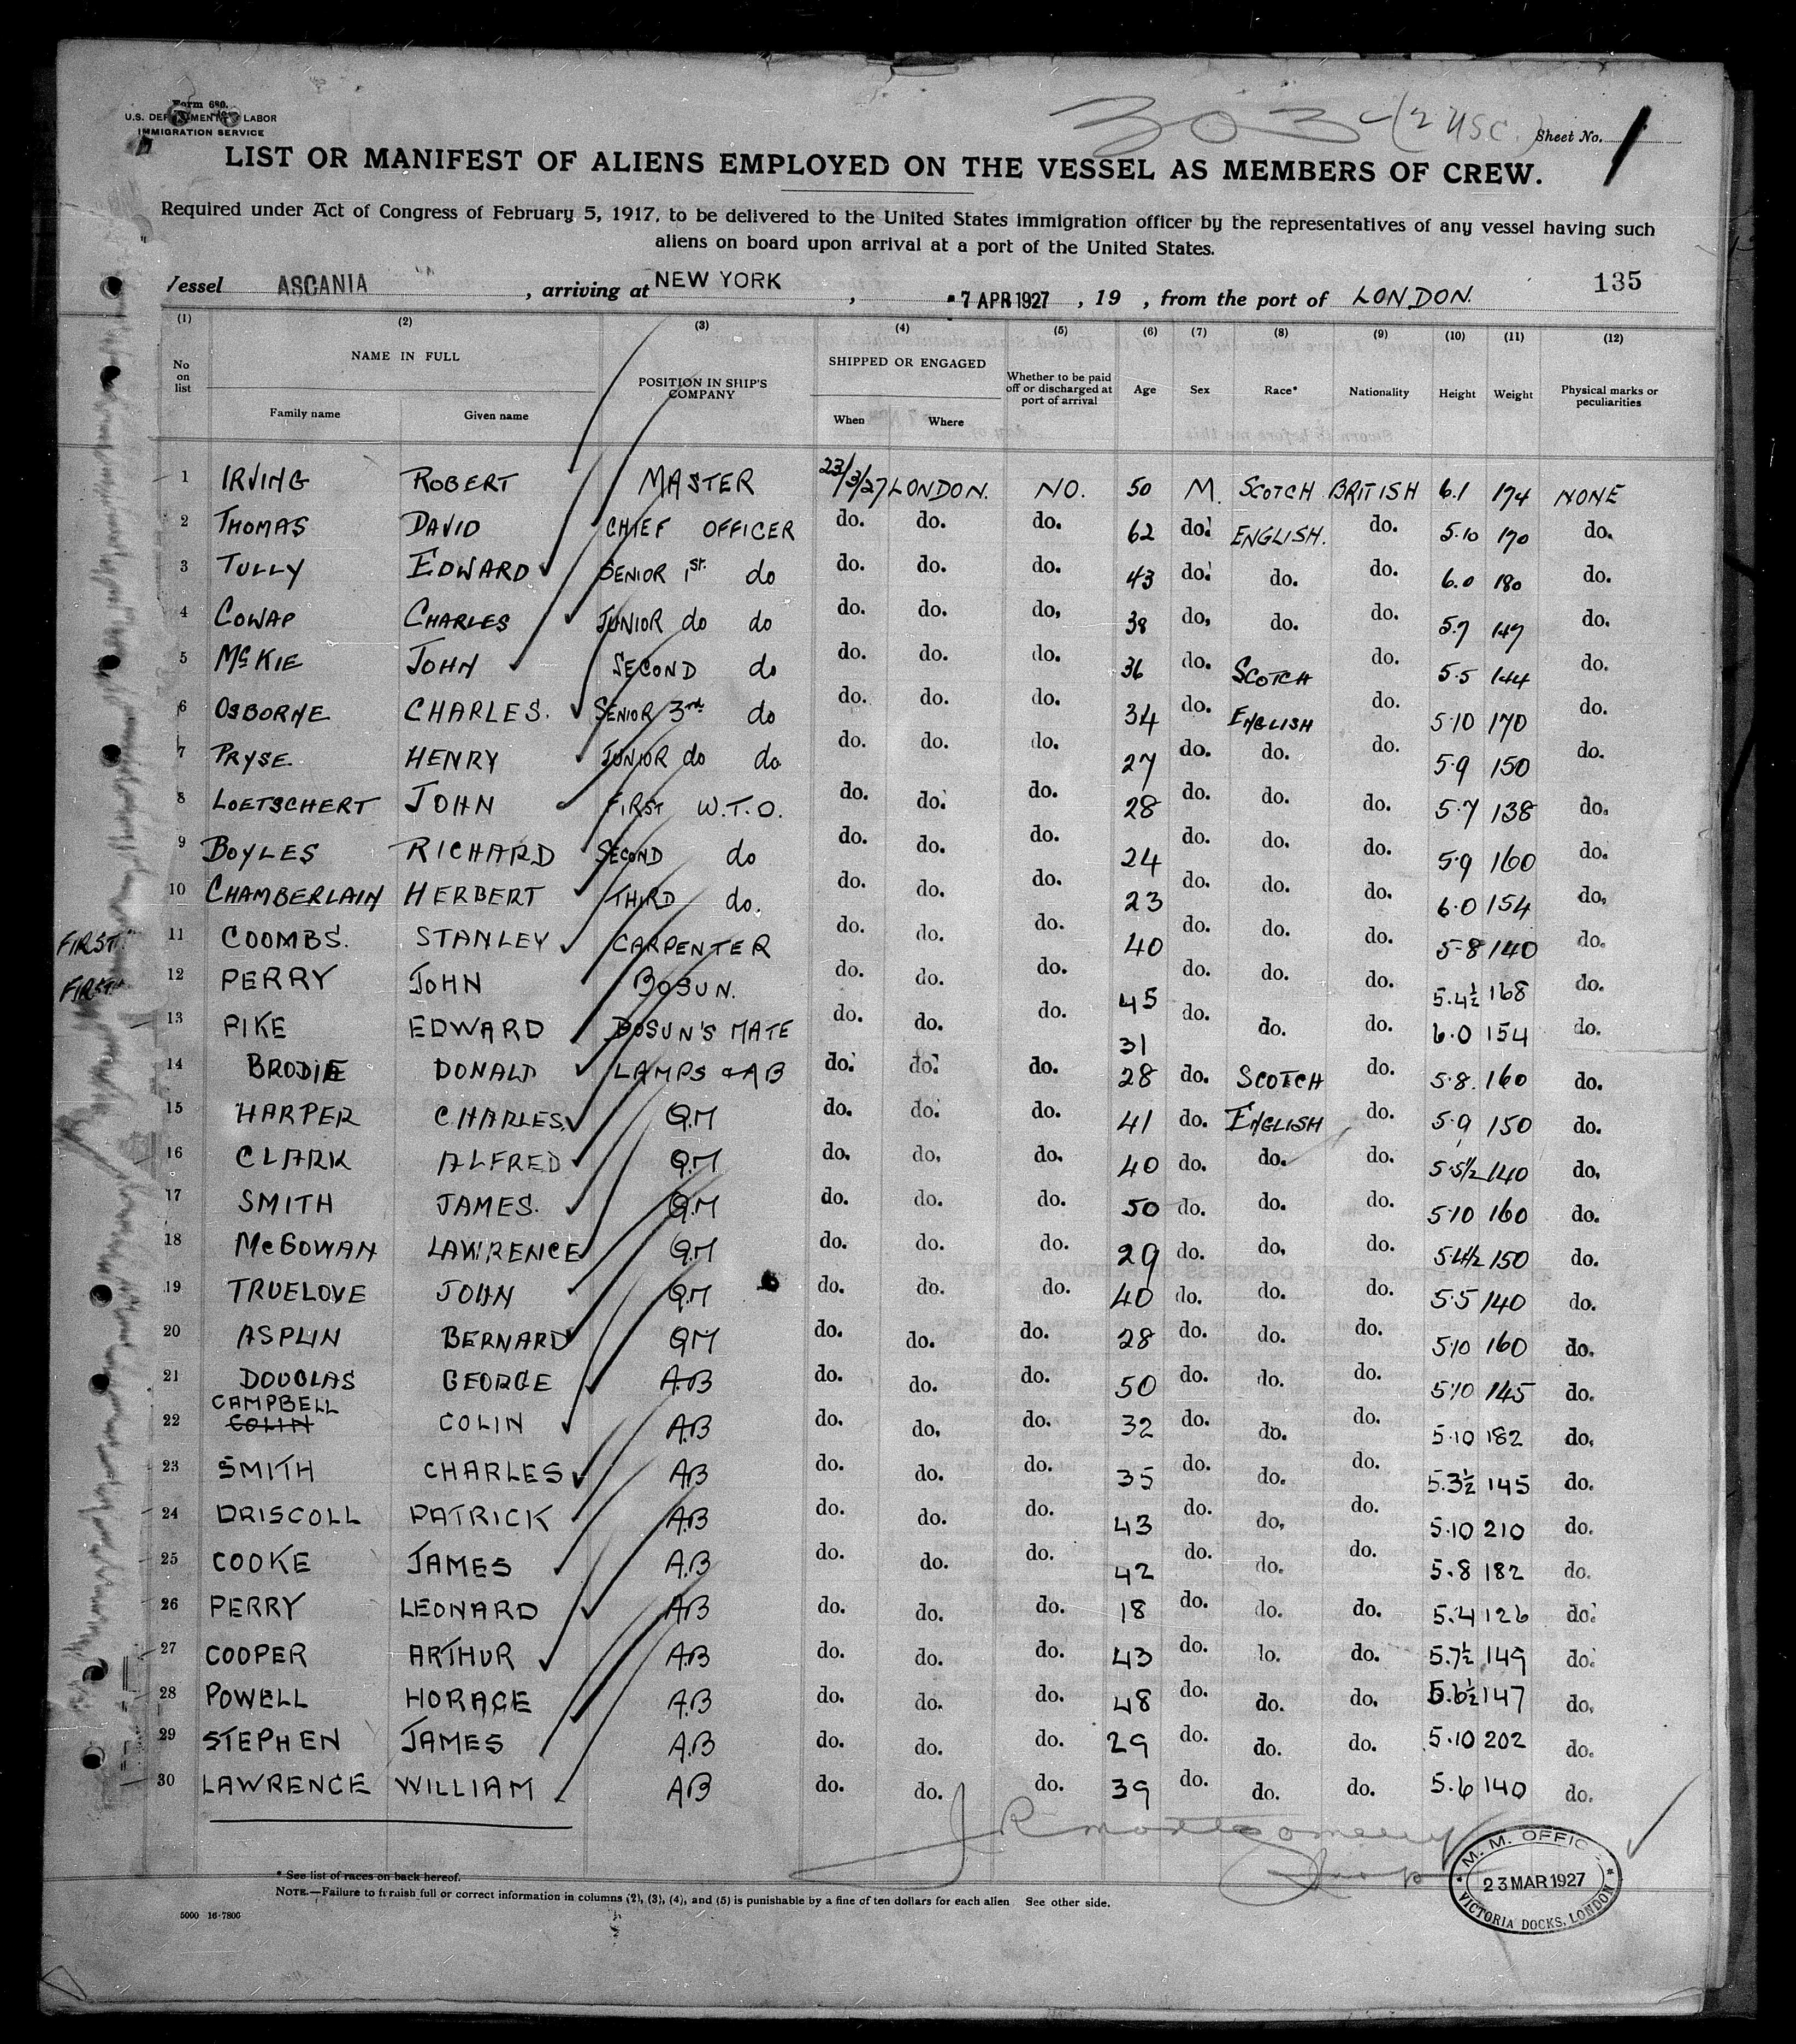 Form 680.
U.S. DEPARTMENT OF LABOR
IMMIGRATION SERVICE
303 - (2 USC.)
Sheet No. 1
LIST OR MANIFEST OF ALIENS EMPLOYED ON THE VESSEL AS MEMBERS OF CREW.
Required under Act of Congress of February 5, 1917, to be delivered to the United States immigration officer by the representatives of any vessel having such
aliens on board upon arrival at a port of the United States.
Vessel ASCANIA, arriving at NEW YORK, 7 APR 1927, 19 , from the port of LONDON. 135
(1) (2) (3) (4) (5) (6) (7) (8) (9) (10) (11) (12)
No on list NAME IN FULL Family name Given name POSITION IN SHIP'S COMPANY SHIPPED OR ENGAGED When Where Whether to be paid off or discharged at port of arrival Age Sex Race* Nationality Height Weight Physical marks or peculiarities
1 IRVING ROBERT MASTER 23/3/27 LONDON. NO. 50 M. SCOTCH BRITISH 6.1 174 NONE
2 THOMAS DAVID CHIEF OFFICER do. do. do. 62 do. ENGLISH. do. 5.10 170 do.
3 TULLY EDWARD SENIOR 1st. do do. do. do. 43 do. do. do. 6.0 180 do.
4 COWAP CHARLES JUNIOR do do do. do. do. 38 do. do. do. 5.7 147 do.
5 McKIE JOHN SECOND do do. do. do. 36 do. SCOTCH do. 5.5 144 do.
6 OSBORNE CHARLES. SENIOR 3rd do do. do. do. 34 do. ENGLISH do. 5.10 170 do.
7 PRYSE HENRY JUNIOR do do do. do. do. 27 do. do. do. 5.9 150 do.
8 LOETSCHERT JOHN FIRST W.T.O. do. do. do. 28 do. do. do. 5.7 138 do.
9 BOYLES RICHARD SECOND do do. do. do. 24 do. do. do. 5.9 160 do.
10 CHAMBERLAIN HERBERT THIRD do. do. do. do. 23 do. do. do. 6.0 154 do.
FIRST 11 COOMBS. STANLEY CARPENTER do. do. do. 40 do. do. do. 5-8 140 do.
FIRST 12 PERRY JOHN BOSUN. do. do. do. 45 do. do. do. 5.4½ 168 do.
13 PIKE EDWARD BOSUN'S MATE do. do. do. 31 do. do. do. 6.0 154 do.
14 BRODIE DONALD LAMPS & AB do. do. do. 28 do. SCOTCH do. 5.8. 160 do.
15 HARPER CHARLES. Q.M do. do. do. 41 do. ENGLISH do. 5.9 150 do.
16 CLARK ALFRED Q.M do. do. do. 40 do. do. do. 5.5½ 140 do.
17 SMITH JAMES. Q.M do. do. do. 50 do. do. do. 5.10 160 do.
18 McGOWAN LAWRENCE Q.M do. do. do. 29 do. do. do. 5.4½ 150 do.
19 TRUELOVE JOHN Q.M do. do. do. 40 do. do. do. 5.5 140 do.
20 ASPLIN BERNARD QM do. do. do. 28 do. do. do. 5.10 160 do.
21 DOUGLAS GEORGE A.B do. do. do. 50 do. do. do. 5.10 145 do.
22 CAMPBELL COLIN COLIN A.B do. do. do. 32 do. do. do. 5.10 182 do.
23 SMITH CHARLES A.B do. do. do. 35 do. do. do. 5.3½ 145 do.
24 DRISCOLL PATRICK A.B do. do. do. 43 do. do. do. 5.10 210 do.
25 COOKE JAMES A.B do. do. do. 42 do. do. do. 5.8 182 do.
26 PERRY LEONARD A.B do. do. do. 18 do. do. do. 5.4 126 do.
27 COOPER ARTHUR A.B do. do. do. 43 do. do. do. 5.7½ 149 do.
28 POWELL HORACE A.B do. do. do. 48 do. do. do. 5.6½ 147 do.
29 STEPHEN JAMES A.B do. do. do. 29 do. do. do. 5.10 202 do.
30 LAWRENCE WILLIAM A.B do. do. do. 39 do. do. do. 5.6 140 do.
J R Montgomery
M. M. OFFICE
23 MAR 1927
VICTORIA DOCKS, LONDON
* See list of races on back hereof.
NOTE.—Failure to furnish full or correct information in columns (2), (3), (4), and (5) is punishable by a fine of ten dollars for each alien See other side.
5000 16-7806